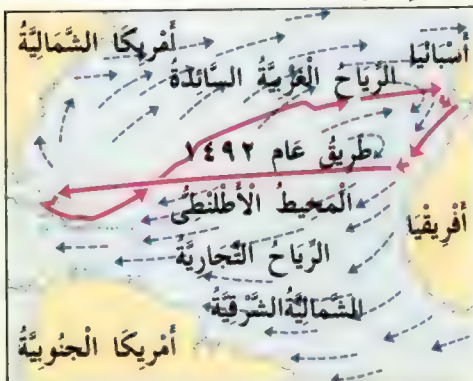 أَمْرِيكَا الشَّمَالِيَّةُ
أَسْبَانْيَا
الرِّيَاحُ الْغَرْبِيَّةُ السَّائِدَةُ
طَرِيقُ عَام ١٤٩٢
الْمُحِيطُ الْأَطْلَنْطِى
أَفْرِيقْيَا
الرِّيَاحُ التِّجَارِيَّةُ
الشَّمَالِيَّةُ الشَّرْقِيَّةُ
أَمْرِيكَا الْجَنُوبِيَّةُ